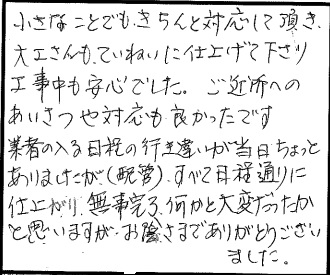 小さなことでもきちんと対応して頂き、
大工さんも、ていねいに仕上げて下さり
工事中も安心でした。ご近所への
あいさつや対応も良かったです
業者の入る日程の行き違いが当日ちょっと
ありましたが(配管)、すべて日程通りに
仕上がり、無事完了、何かと大変だったか
と思いますが、お陰さまでありがとうござい
ました。